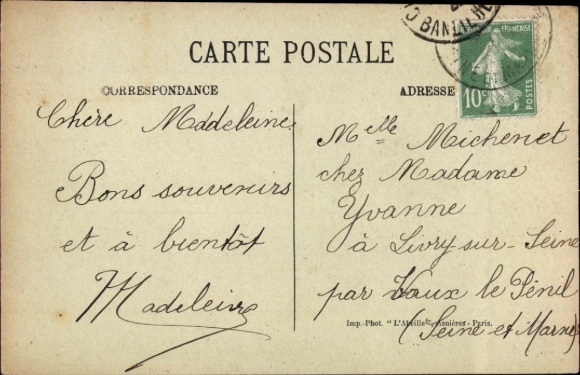 CARTE POSTALE
CORRESPONDANCE
ADRESSE
10c
POSTES
Chère Madeleine
Bons souvenirs
et à bientôt
Madeleine
Melle Michenet
chez Madame
Yvanne
à Livry-sur-Seine
par Vaux le Pénil
(Seine et Marne)
Imp.-Phot. "L'Abeille" Asnières - Paris.